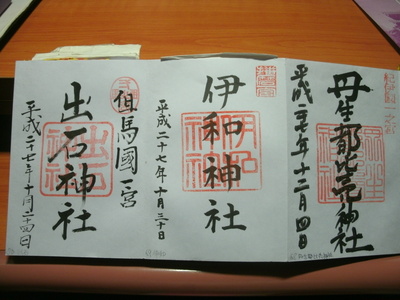 丹生都比売神社
平成二十七年十二月四日
伊和神社
平成二十七年十月三十日
但馬國一宮
出石神社
平成二十七年十月二十四日